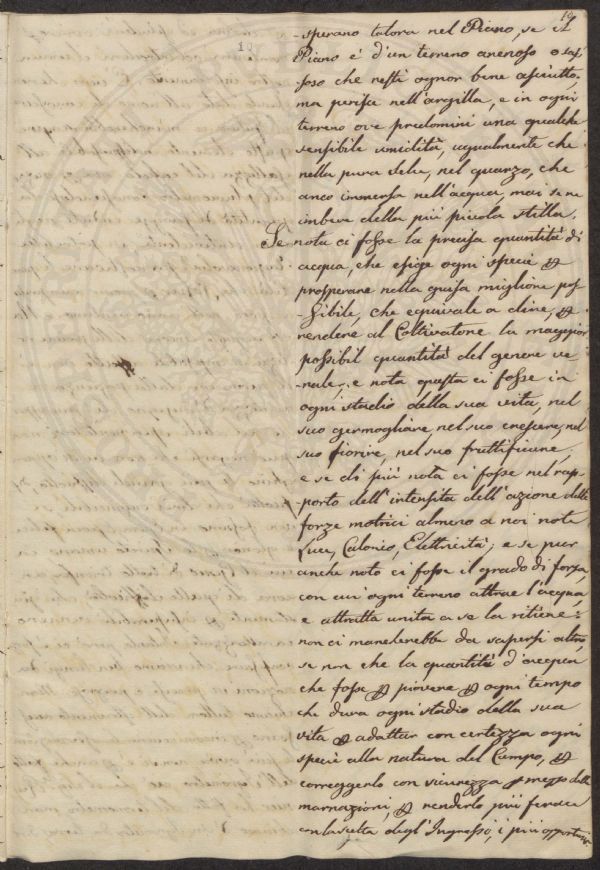 10
-sperano talora nel Piano, se il
Piano è d'un terreno arenoso o sas-
soso che resti ognor bene asciutto,
ma perisce nell'argilla, e in ogni
terreno ove predomini una qualche
sensibile umidità, ugualmente che
nella pura selce, nel quarzo, che
anco immersa nell'acqua, mai se ne
imbeve della più piccola stilla.
Se nota ci fosse la precisa quantità di
acqua, che esige ogni specie
prosperare nella guisa migliore pos-
-sibile, che equivale a dire,
rendere al Coltivatore la maggior
possibil quantità del genere ve-
nale; e nota questa ci fosse in
ogni stadio della sua vita, nel
suo germogliare, nel suo crescere, nel
suo fiorire, nel suo fruttificare,
e se di più nota ci fosse nel rap-
porto dell'intensità dell'azione delle
forze motrici almeno a noi note
Luce, Calorico, Elettricità; e se pur
anche noto ci fosse il grado di forza,
con cui ogni terreno attrae l'acqua,
e attratta unita a se la ritiene:
non ci mancherebbe da sapersi altro,
se non che la quantità d'acqua
che fosse piovere ogni tempo
che dura ogni stadio della sua
vita adattar con certezza ogni
specie alla natura del Campo,
correggerlo con sicurezza mezzo delle
marnazioni, renderlo più ferace
con la scelta degl'Ingrassi, i più opportuni